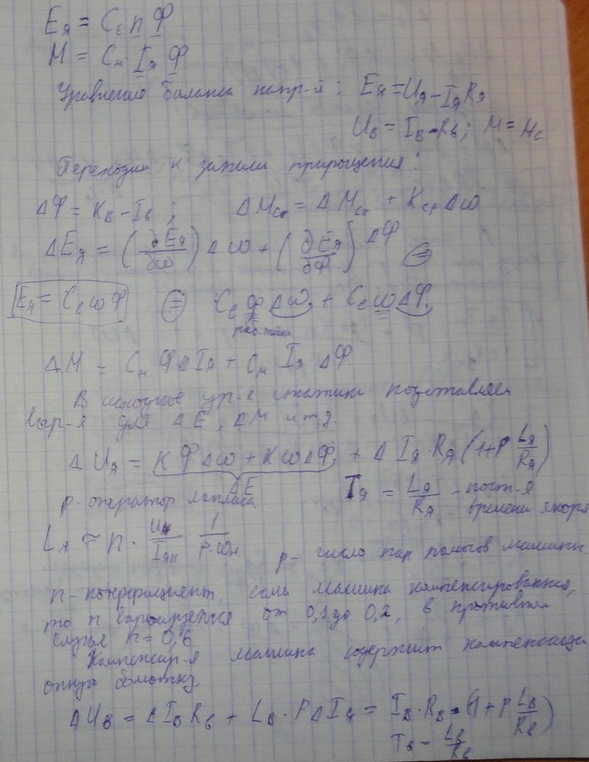 Eя = Cε n Ф
M = Cм Iя Ф
Уравнение баланса напр-я : Eя = Uя - Iя Rя
Uв = Iв · Rв ; M = Mс
Переходим к записи приращения :
ΔФ = Kв - Iв ; ΔMс = ΔMс + Kс Δω
ΔEя = (∂Eя/∂ω) Δω + (∂Eя/∂Ф) ΔФ =
Eя = Cε ω Ф = Cε Ф Δω + Cε ω ΔФ
ΔM = Cм Ф ΔIя + Cм Iя ΔФ
В исходное ур-е статики подставляем
выр-я для ΔE, ΔM и т.д.
ΔUя = KФΔω + KωΔФ + ΔIя Rя (1+p Lя/Rя)
ΔE
p - оператор лапласа Tя = Lя/Rя - пост-я
времени якоря
Lя ≈ n · Uн/Iян · 1/p·ωн
p - число пар полюсов машины
n - коэффициент, если машина компенсированная,
то n варьируется от 0,1 до 0,2, в противном
случае n = 0,6
Компенсир-я машина содержит компенсаци
онную обмотку
ΔUв = ΔIв Rв + Lв · PΔIв = Iв · Rв · (1 + p Lв/Rв)
Tв = Lв/Rв